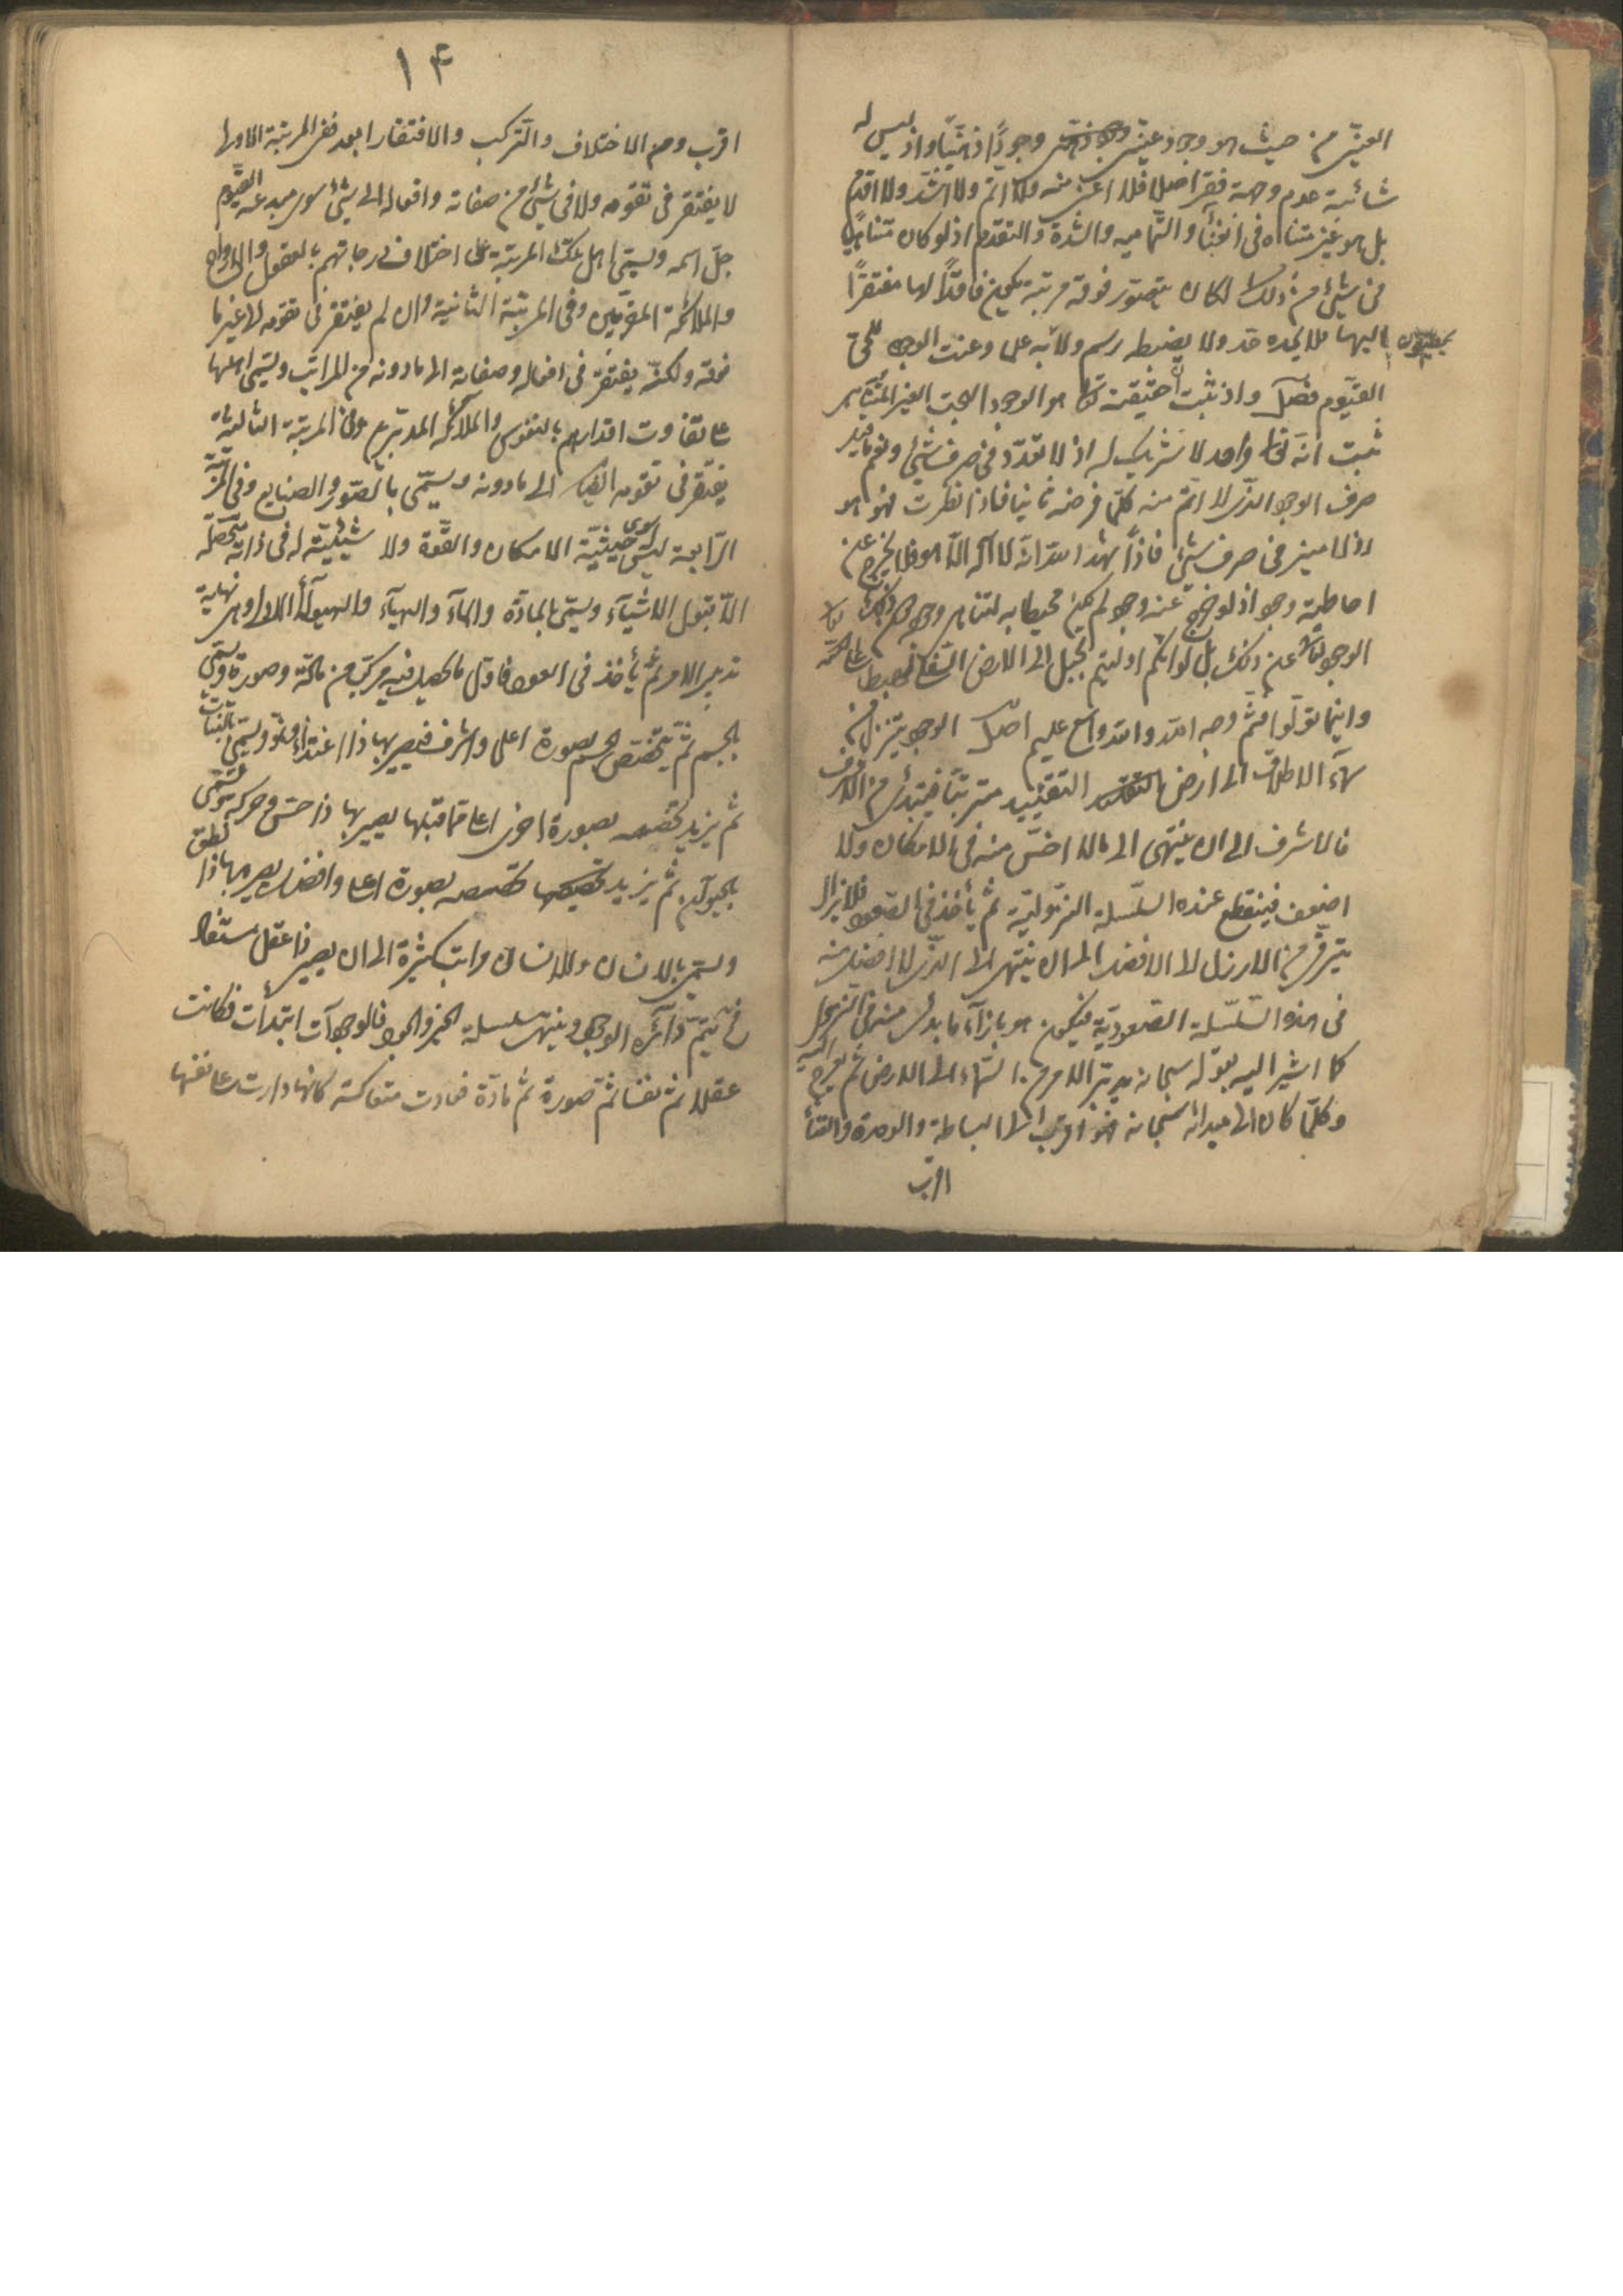 العينى من حيث هو وجود عينى وجوداً ذهنيّاً واذ ليس له
شائبة عدم وجهة فقر اصلا فلا اغنى منه ولا اتمّ ولا اشدّ ولا اقدم
بل هو غير متناه فى الغنا والتماميه والشدة والتقدم اذ لو كان متناهياً
فى شئ من ذلك لكان يتصوّر فوقه مرتبة يكون فاقداً لها مفتقراً
اليها فلا يحده حد ولا يضبطه رسم ولا يحيطون به علما وعنت الوجوه للحى
القيّوم فصل واذ ثبت ان حقيقته تعا هو الوجود البحت الغير المتناهى
ثبت انّه تعا واحد لا شريك له اذ لا تعدّد فى صرف شئ ونعم ما قيل
صرف الوجود الذى لا اتمّ منه كلّما فرضته ثانيا فاذا نظرت فهو هو
اذ لا ميز فى صرف شئ فاذاً شهد الله انّه لا اله الّا هو فلا يخرج عن
احاطته وجود اذ لو خرج عنه وجود لم يكن محيطا به لتناهى وجوده دون ذلك
الوجود تعا عن ذلك بل لو انكم ادليتم بحبل الى الارض السفلى لهبط على الله
واينما تولّوا فثمّ وجه الله والله واسع عليم اصل الوجود يتنزل من
سمآء الاطلاق الى ارض التقييد مترتبا فيبتدئ من الاشرف
فالاشرف الى ان ينتهى الى ما لا اخسّ منه فى الامكان ولا
اضعف فينقطع عنده السّلسلة النزوليّة ثم يأخذ فى الصّعود فلا يزال
يترقّى من الارذل الى الافضل الى ان ينتهى الى الذى لا افضل منه
فى هذه السّلسلة الصّعوديّة فيكون هو بازآء ما بدئ منه فى النزول
كما اشير اليه بقوله سبحانه يدبّر الامر من السّماء الى الارض ثم يعرج اليه
وكلّما كان الى مبدائه سبحانه فهو اقرب الى البساطة والوحدة والغنأ
اقرب
١٤
اقرب ومن الاختلاف والتّركب والافتقار ابعد ففى المرتبة الاولى
لا يفتقر فى تقومه ولا فى شئ من صفاته وافعاله الى شئ سوى مبدعه القيّوم
جلّ اسمه ويسمّى اهل تلك المرتبة على اختلاف درجاتهم بالعقول والارواح
والملائكة المقرّبين وفى المرتبة الثانية وان لم يفتقر فى تقومه الى غير ما
فوقه ولكنّه يفتقر فى افعاله وصفاته الى ما دونه من المراتب ويسمى اهلها
على تفاوت اقدارهم بالنفوس والملائكة المدبّرين وفى المرتبة الثالثة
يفتقر فى تقومه ايضا الى ما دونه ويسمّى بالصّور والصنايع وفى المرتبة
الرّابعة ليس له سوى حيثيّة الامكان والقوّة ولا شيئيّة له فى ذاته متحصّلة
الّا بقبول الاشيآء ويسمّى بالمادّة والمآء والهبآء والهيولى الاولى وهى نهاية
تدبير الامر ثم يأخذ فى العود فاوّل ما يحصل فيه مركّب من مادّة وصورة ويسمّى
بالجسم ثم يتخصّص الجسم بصورة اعلى واشرف فيصير بها ذا اغتذاء ونموّ ويسمى بالنبات
ثم يزيد تخصصه بصورة اخرى اعلى ممّا قبلها يصير بها ذا حسّ وحركة ويسمّى
بالحيوان ثم يزيد تخصصه بصورة اعلى وافضل يصير بها ذا نطق
ويسمى بالانسان وللانسان مراتب كثيرة الى ان يصير ذا عقل مستفاد
فح يتمّ دآئرة الوجود وينتهى سلسلة الخير والجود فالوجودآت ابتدأت فكانت
عقلا ثمّ نفسا ثمّ صورة ثم مادّة فعادت متعاكسة كانها دارت على نفسها